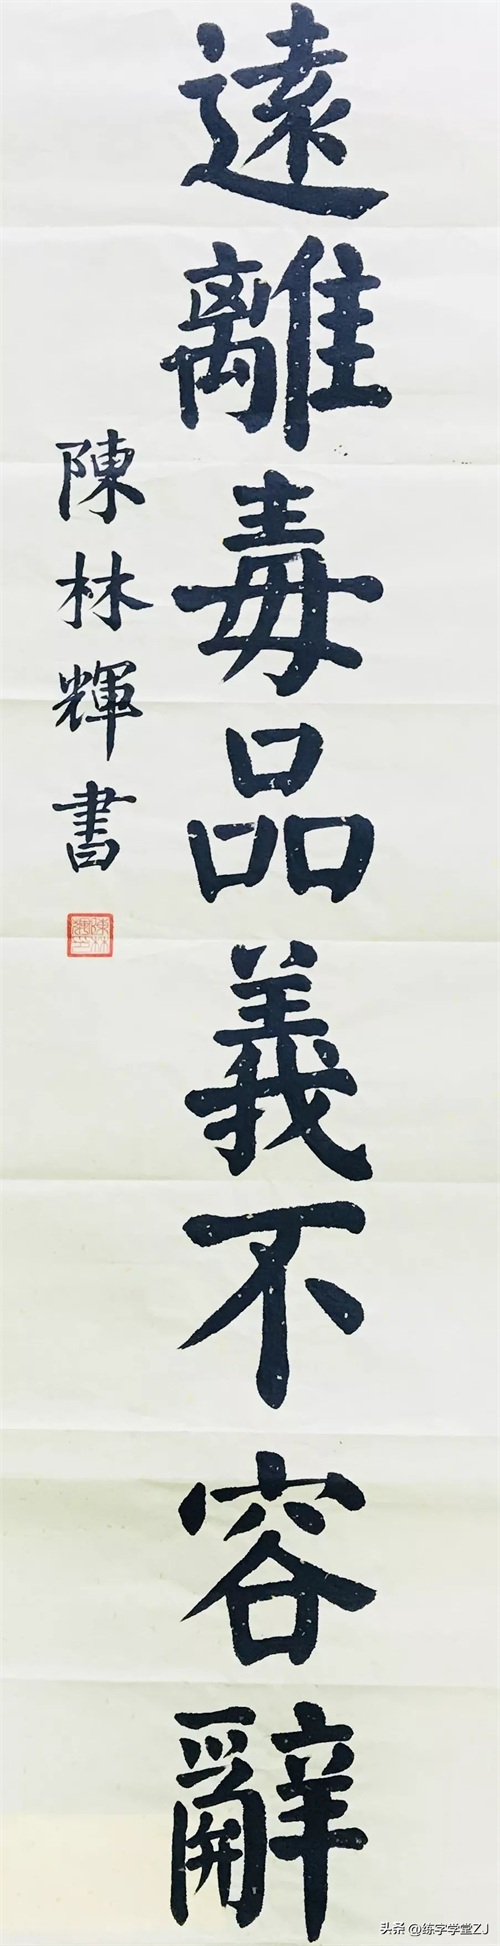 遠離毒品義不容辭
陳林輝書
头条 @练字学堂ZJ